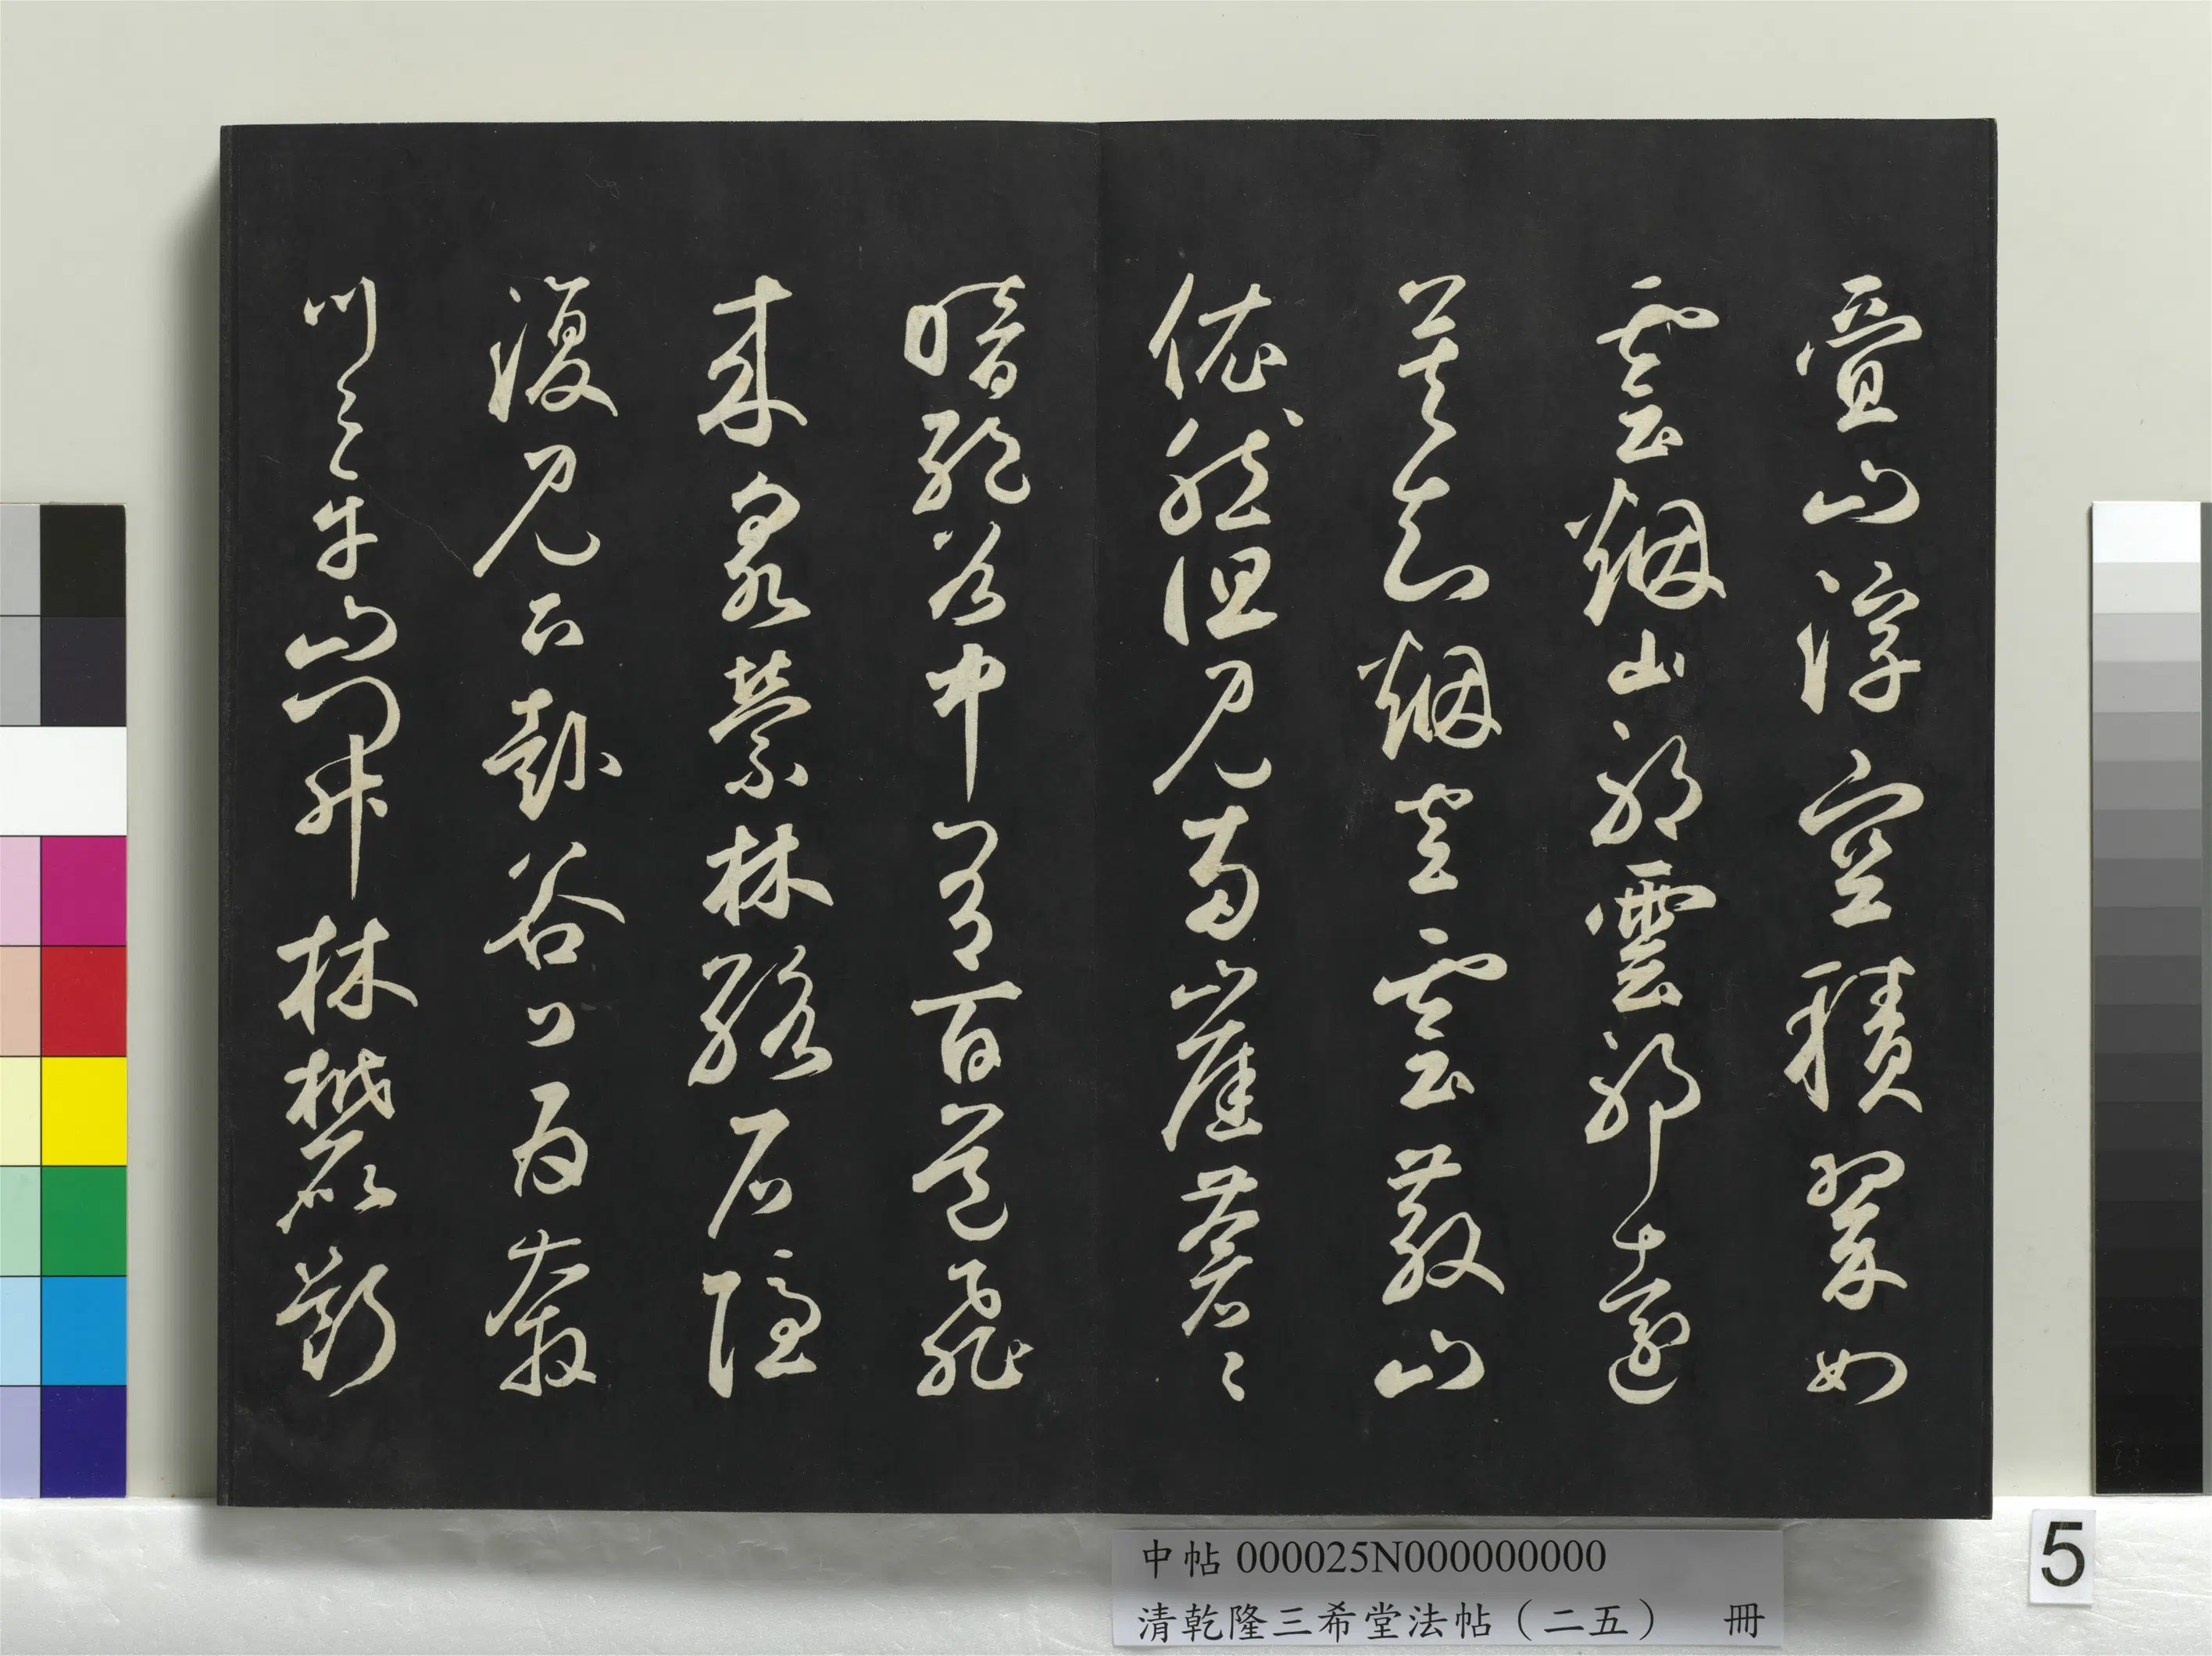 疊山浮空積翠如
雲煙山耶雲耶遠
莫知煙空雲散山
依然但見兩崖蒼々
暗絕谷中有百道飛
來泉縈林絡石隱
復見下赴谷口為奔
川々平山開林麓斷
5
中帖 000025N000000000
清乾隆三希堂法帖（二五） 冊